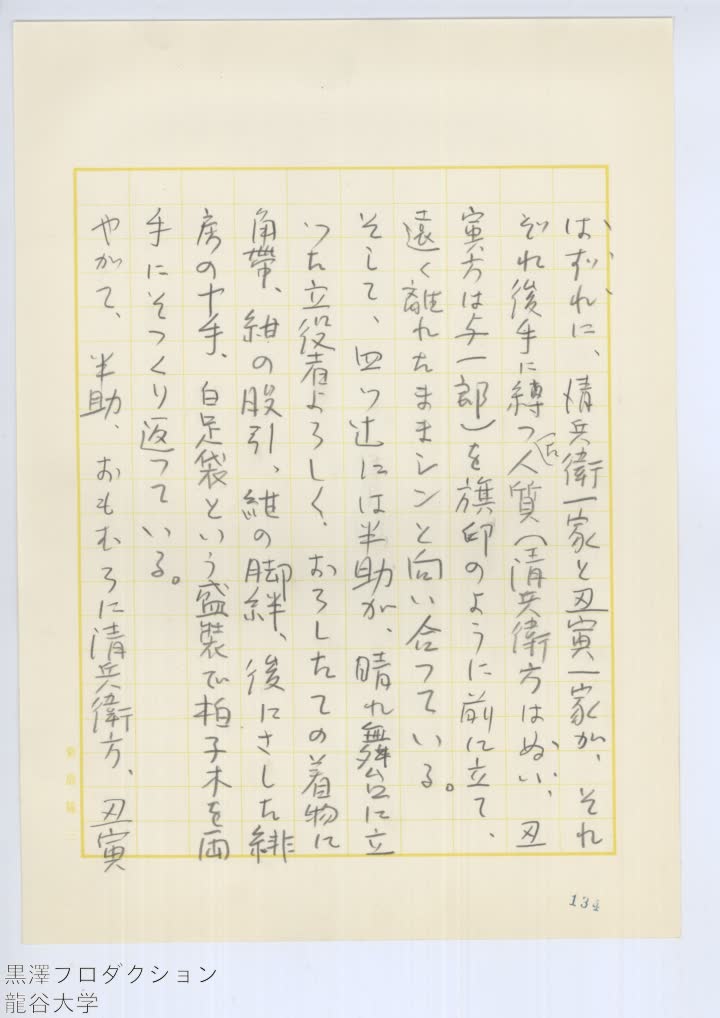 はずれに、清兵衛一家と丑寅一家が、それ
ぞれ後手に縛つた人質(清兵衛方はぬい、丑
寅方は与一郎)を旗印のように前に立て、
遠く離れたままシンと向い合つている。
そして、四ツ辻には半助が、晴れ舞台に立
つた立役者よろしく、おろしたての着物に
角帯、紺の股引、紺の脚絆、後にさした緋
房の十手、白足袋という盛装で柏子木を両
手にそつくり返つている。
やがて、半助、おもむろに清兵衛方、丑寅
134
黒澤プロダクション
龍谷大学